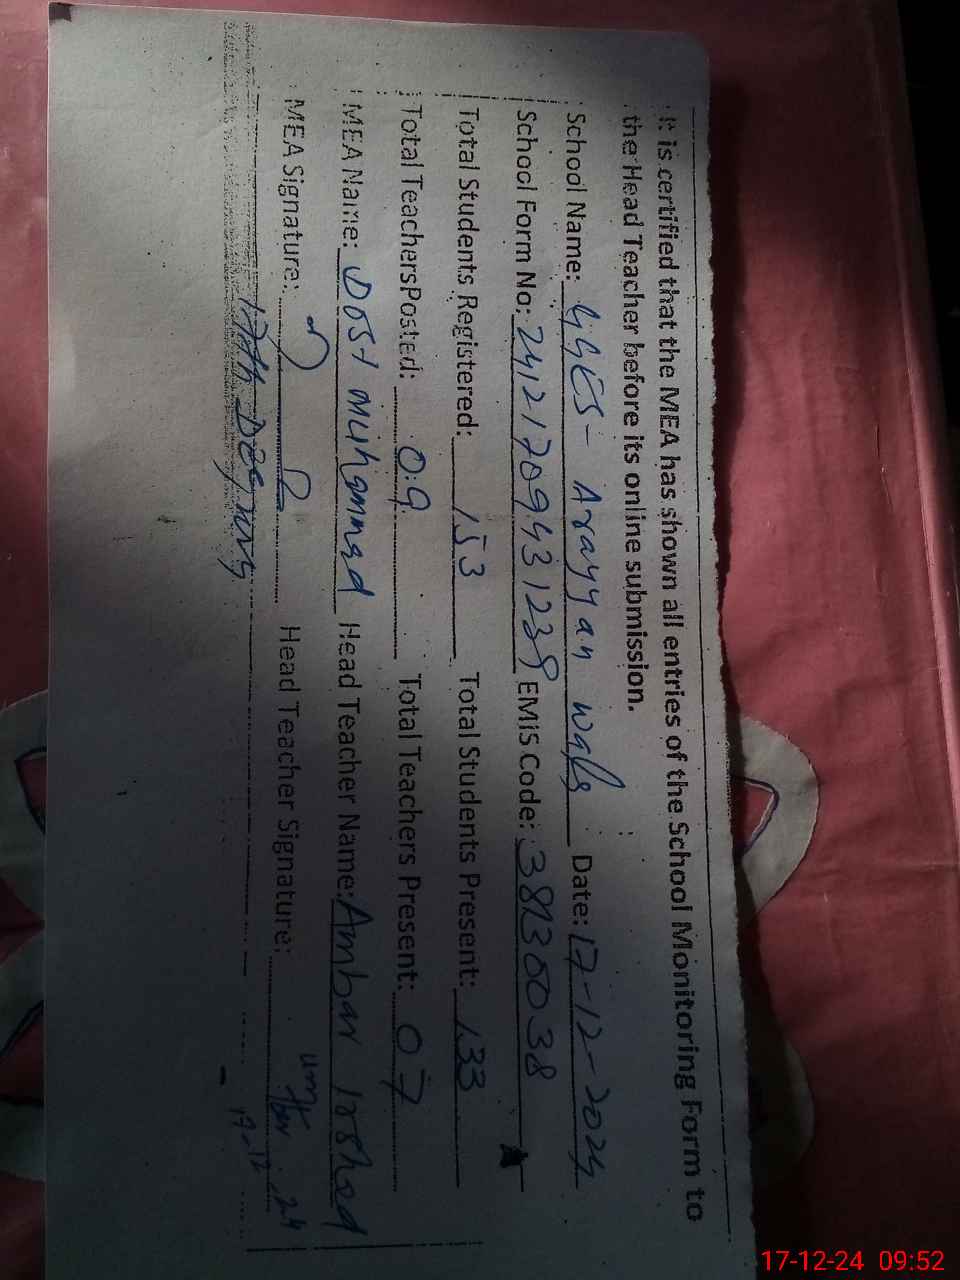 It is certified that the MEA has shown all entries of the School Monitoring Form to
the Head Teacher before its online submission.
School Name: GGES- Arayyan wala Date: 17-12-2024
School Form No: EMIS Code: 38130038
Total Students Registered: 153 Total Students Present: 133
Total TeachersPosted: 09 Total Teachers Present: 07
MEA Name: Dost Muhammad Head Teacher Name: Ambar Irshad
MEA Signature: Head Teacher Signature:
17-12-24 09:52